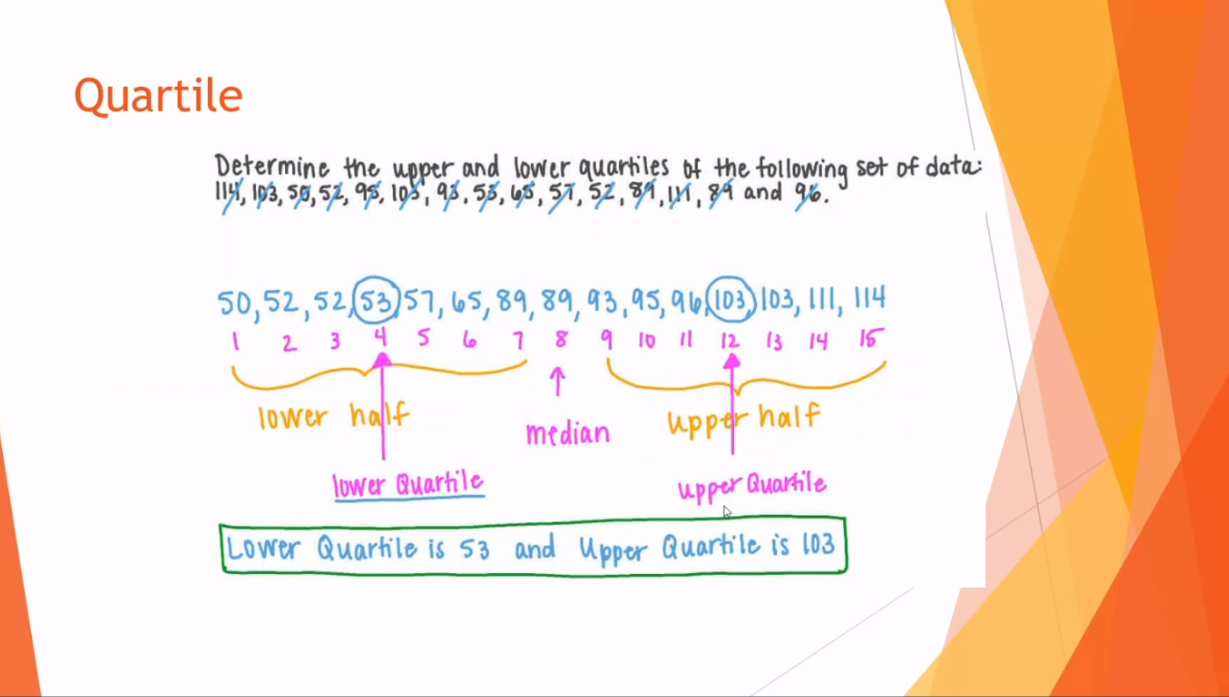 Quartile
Determine the upper and lower quartiles of the following set of data:
114, 103, 50, 52, 95, 103, 93, 53, 65, 57, 52, 89, 111, 89 and 96.
50, 52, 52, 53, 57, 65, 89, 89, 93, 95, 96, 103, 103, 111, 114
1 2 3 4 5 6 7 8 9 10 11 12 13 14 15
lower half upper half
median
lower Quartile upper Quartile
Lower Quartile is 53 and Upper Quartile is 103